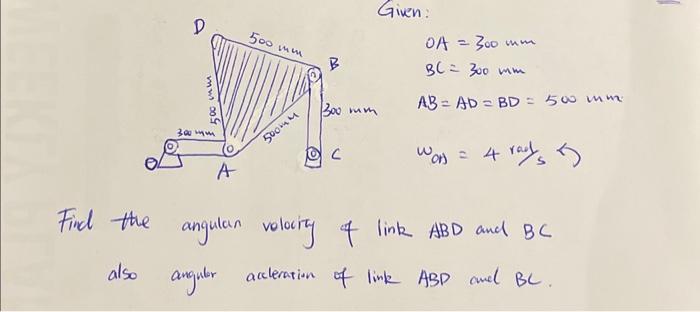 Given:
D
500 mm
OA = 300 mm
B
BC = 300 mm
500 mm
300 mm
AB = AD = BD = 500 mm
500 mm
300 mm
O
A
C
ω_OA = 4 rad/s ↺
Find the angular velocity of link ABD and BC
also angular acceleration of link ABD and BC.